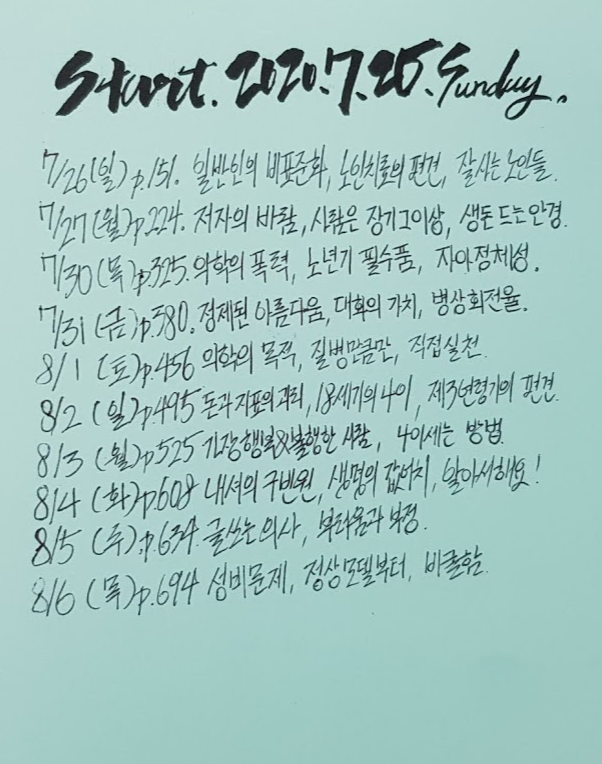 Start. 2020.7.25. Sunday.
7/26(일)p.151. 일반인의 비표준화, 노인치료의 편견, 잘사는 노인들.
7/27(월)p.224. 저자의 바람, 사람은 장기그이상, 생돈 드는 안경.
7/30(목)p.325. 의학의 폭력, 노년기 필수품, 자아정체성.
7/31(금)p.380. 정제된 아름다움, 대화의 가치, 병상회전율.
8/1 (토)p.456 의학의 목적, 질병만큼만, 직접실천.
8/2 (일)p.495 돈과 지표의 괴리, 18세기의 나이, 제3연령기의 편견.
8/3 (월)p525 가장행복&불행한 사람, 나이세는 방법.
8/4 (화)p.608 내셔의 구빈원, 생명의 값어치, 알아서해요!
8/5 (수).p.634. 글쓰는 의사, 부차물과 부정.
8/6 (목)p.694 성비문제, 정상모델부터, 비굴함.